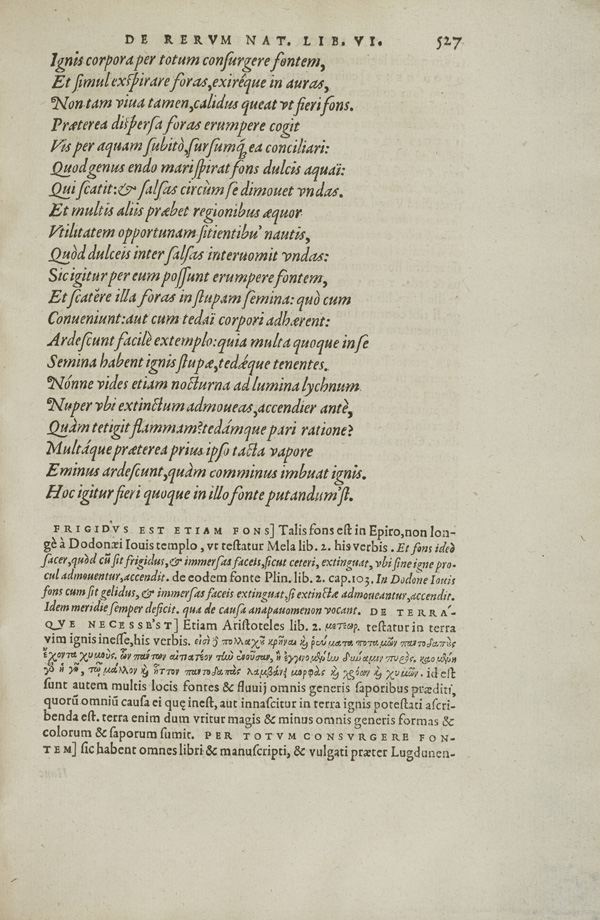 DE RERVM NAT. LIB. VI. 527
Ignis corpora per totum consurgere fontem,
Et simul exspirare foras, exiréque in auras,
Non tam viua tamen, calidus queat vt fieri fons.
Præterea dispersa foras erumpere cogit
Vis per aquam subitò, sursumq́; ea conciliari:
Quod genus endo mari spirat fons dulcis aquaï:
Qui scatit: & salsas circùm se dimouet vndas.
Et multis aliis præbet regionibus æquor
Vtilitatem opportunam sitientibu' nautis,
Quòd dulceis inter salsas interuomit vndas:
Sic igitur per eum possunt erumpere fontem,
Et scatěre illa foras in stupam semina: quò cum
Conueniunt: aut cum tedaï corpori adhærent:
Ardescunt facilè extemplo: quia multa quoque in se
Semina habent ignis stupæ, tedǽque tenentes.
Nónne vides etiam nocturna ad lumina lychnum
Nuper vbi extinctum admoueas, accendier antè,
Quàm tetigit flammam? tedámque pari ratione?
Multáque præterea prius ipso tacta vapore
Eminus ardescunt, quàm comminus imbuat ignis.
Hoc igitur fieri quoque in illo fonte putandum'st.
FRIGIDVS EST ETIAM FONS] Talis fons est in Epiro, non lon-
gè à Dodonæi Iouis templo, vt testatur Mela lib. 2. his verbis. Et fons ideò
sacer, quòd cũ sit frigidus, & immersas faceis, sicut ceteri, extinguat, vbi sine igne pro-
cul admouentur, accendit. de eodem fonte Plin. lib. 2. cap. 103. In Dodone Iouis
fons cum sit gelidus, & immersas faceis extinguat, si extinctæ admoueantur, accendit.
Idem meridie semper deficit. qua de causa anapauomenon vocant. DE TERRA-
QVE NECESSE'ST] Etiam Aristoteles lib. 2. μετεωρ. testatur in terra
vim ignis inesse, his verbis. εἰσὶ δὲ πολλαχοῦ κρῆναι καὶ ῥεύματα ποταμῶν παντοδαποὺς
ἔχοντα χυμούς. ὧν πάντων αἰτιατέον τὴν ἐνοῦσαν, ἢ ἐγγινομένην δύναμιν πυρός. καομένη
γὰρ ἡ γῆ, τῷ μᾶλλον καὶ ἧττον παντοδαπὰς λαμβάνει μορφὰς καὶ χρόας καὶ χυμῶν. id est
sunt autem multis locis fontes & fluuij omnis generis saporibus præditi,
quorũ omniũ causa ei quę inest, aut innascitur in terra ignis potestati ascri-
benda est. terra enim dum vritur magis & minus omnis generis formas &
colorum & saporum sumit. PER TOTVM CONSVRGERE FON-
TEM] sic habent omnes libri & manuscripti, & vulgati præter Lugdunen-